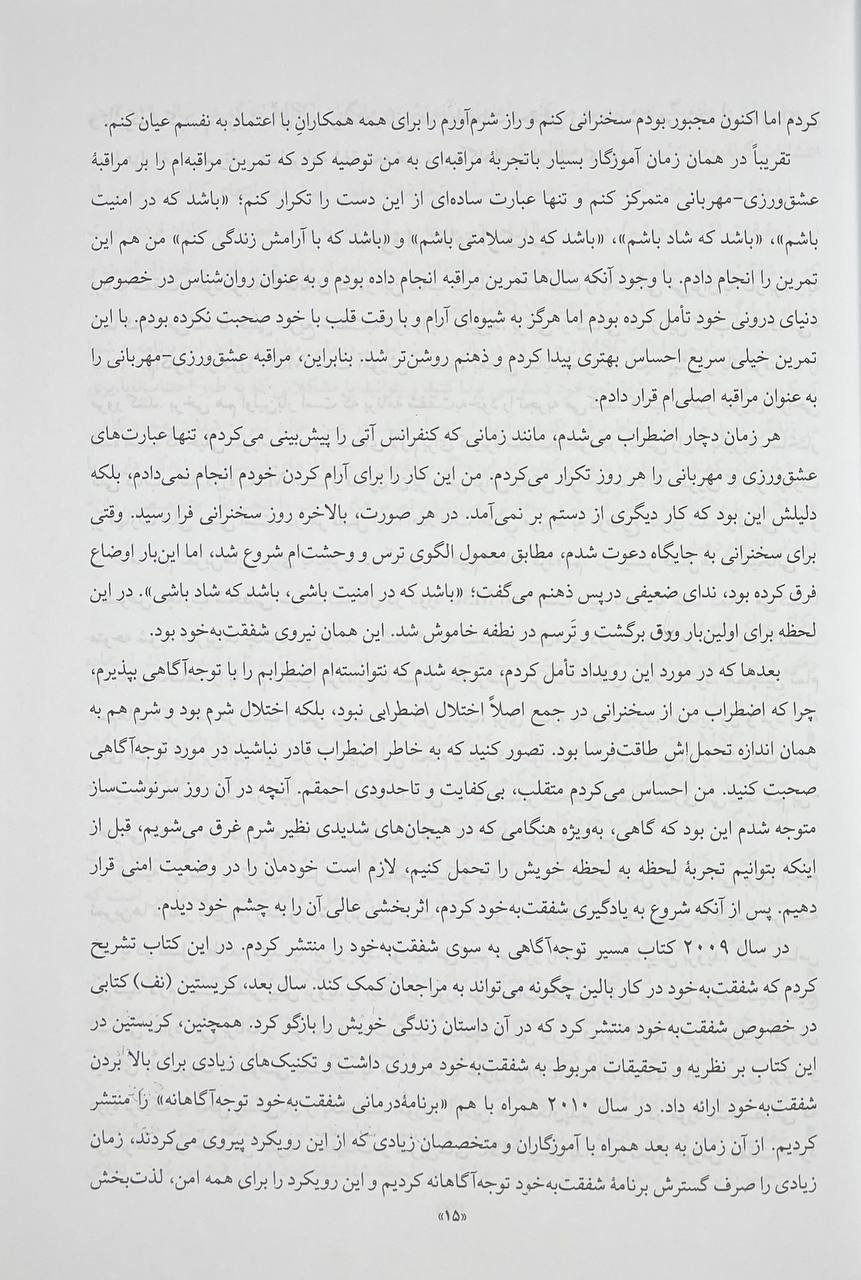 کردم اما اکنون مجبور بودم سخنرانی کنم و راز شرم‌آورم را برای همه همکارانِ با اعتماد به نفسم عیان کنم.
تقریباً در همان زمان آموزگار بسیار باتجربهٔ مراقبه‌ای به من توصیه کرد که تمرین مراقبه‌ام را بر مراقبهٔ
عشق‌ورزی-مهربانی متمرکز کنم و تنها عبارت ساده‌ای از این دست را تکرار کنم؛ «باشد که در امنیت
باشم»، «باشد که شاد باشم»، «باشد که در سلامتی باشم» و «باشد که با آرامش زندگی کنم» من هم این
تمرین را انجام دادم. با وجود آنکه سال‌ها تمرین مراقبه انجام داده بودم و به عنوان روان‌شناس در خصوص
دنیای درونی خود تأمل کرده بودم اما هرگز به شیوه‌ای آرام و با رقت قلب با خود صحبت نکرده بودم. با این
تمرین خیلی سریع احساس بهتری پیدا کردم و ذهنم روشن‌تر شد. بنابراین، مراقبه عشق‌ورزی-مهربانی را
به عنوان مراقبه اصلی‌ام قرار دادم.
هر زمان دچار اضطراب می‌شدم، مانند زمانی که کنفرانس آتی را پیش‌بینی می‌کردم، تنها عبارت‌های
عشق‌ورزی و مهربانی را هر روز تکرار می‌کردم. من این کار را برای آرام کردن خودم انجام نمی‌دادم، بلکه
دلیلش این بود که کار دیگری از دستم بر نمی‌آمد. در هر صورت، بالاخره روز سخنرانی فرا رسید. وقتی
برای سخنرانی به جایگاه دعوت شدم، مطابق معمول الگوی ترس و وحشت‌ام شروع شد، اما این‌بار اوضاع
فرق کرده بود، ندای ضعیفی درپس ذهنم می‌گفت؛ «باشد که در امنیت باشی، باشد که شاد باشی». در این
لحظه برای اولین‌بار ورق برگشت و تَرسم در نطفه خاموش شد. این همان نیروی شفقت‌به‌خود بود.
بعدها که در مورد این رویداد تأمل کردم، متوجه شدم که نتوانسته‌ام اضطرابم را با توجه‌آگاهی بپذیرم،
چرا که اضطراب من از سخنرانی در جمع اصلاً اختلال اضطرابی نبود، بلکه اختلال شرم بود و شرم هم به
همان اندازه تحمل‌اش طاقت‌فرسا بود. تصور کنید که به خاطر اضطراب قادر نباشید در مورد توجه‌آگاهی
صحبت کنید. من احساس می‌کردم متقلب، بی‌کفایت و تاحدودی احمقم. آنچه در آن روز سرنوشت‌ساز
متوجه شدم این بود که گاهی، به‌ویژه هنگامی که در هیجان‌های شدیدی نظیر شرم غرق می‌شویم، قبل از
اینکه بتوانیم تجربهٔ لحظه به لحظه خویش را تحمل کنیم، لازم است خودمان را در وضعیت امنی قرار
دهیم. پس از آنکه شروع به یادگیری شفقت‌به‌خود کردم، اثربخشی عالی آن را به چشم خود دیدم.
در سال ۲۰۰۹ کتاب مسیر توجه‌آگاهی به سوی شفقت‌به‌خود را منتشر کردم. در این کتاب تشریح
کردم که شفقت‌به‌خود در کار بالین چگونه می‌تواند به مراجعان کمک کند. سال بعد، کریستین (نف) کتابی
در خصوص شفقت‌به‌خود منتشر کرد که در آن داستان زندگی خویش را بازگو کرد. همچنین، کریستین در
این کتاب بر نظریه و تحقیقات مربوط به شفقت‌به‌خود مروری داشت و تکنیک‌های زیادی برای بالا بردن
شفقت‌به‌خود ارائه داد. در سال ۲۰۱۰ همراه با هم «برنامهٔ‌درمانی شفقت‌به‌خود توجه‌آگاهانه» را منتشر
کردیم. از آن زمان به بعد همراه با آموزگاران و متخصصان زیادی که از این رویکرد پیروی می‌کردند، زمان
زیادی را صرف گسترش برنامهٔ شفقت‌به‌خود توجه‌آگاهانه کردیم و این رویکرد را برای همه امن، لذت‌بخش
«۱۵»